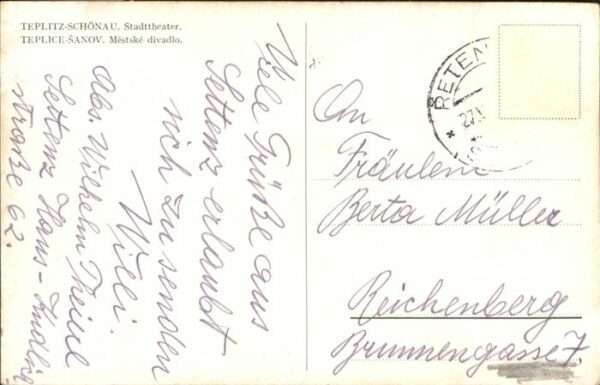 TEPLITZ-SCHÖNAU. Stadttheater.
TEPLICE-ŠANOV. Městské divadlo.
Viele Grüße aus
Settenz erlaubt
sich zu senden
Willi.
Abs. Wilhelm Theinl
Settenz Hans-
straße 62.
ŘETEN
27.
An
Fräulein
Berta Müller
Reichenberg
Brunnengasse 7.